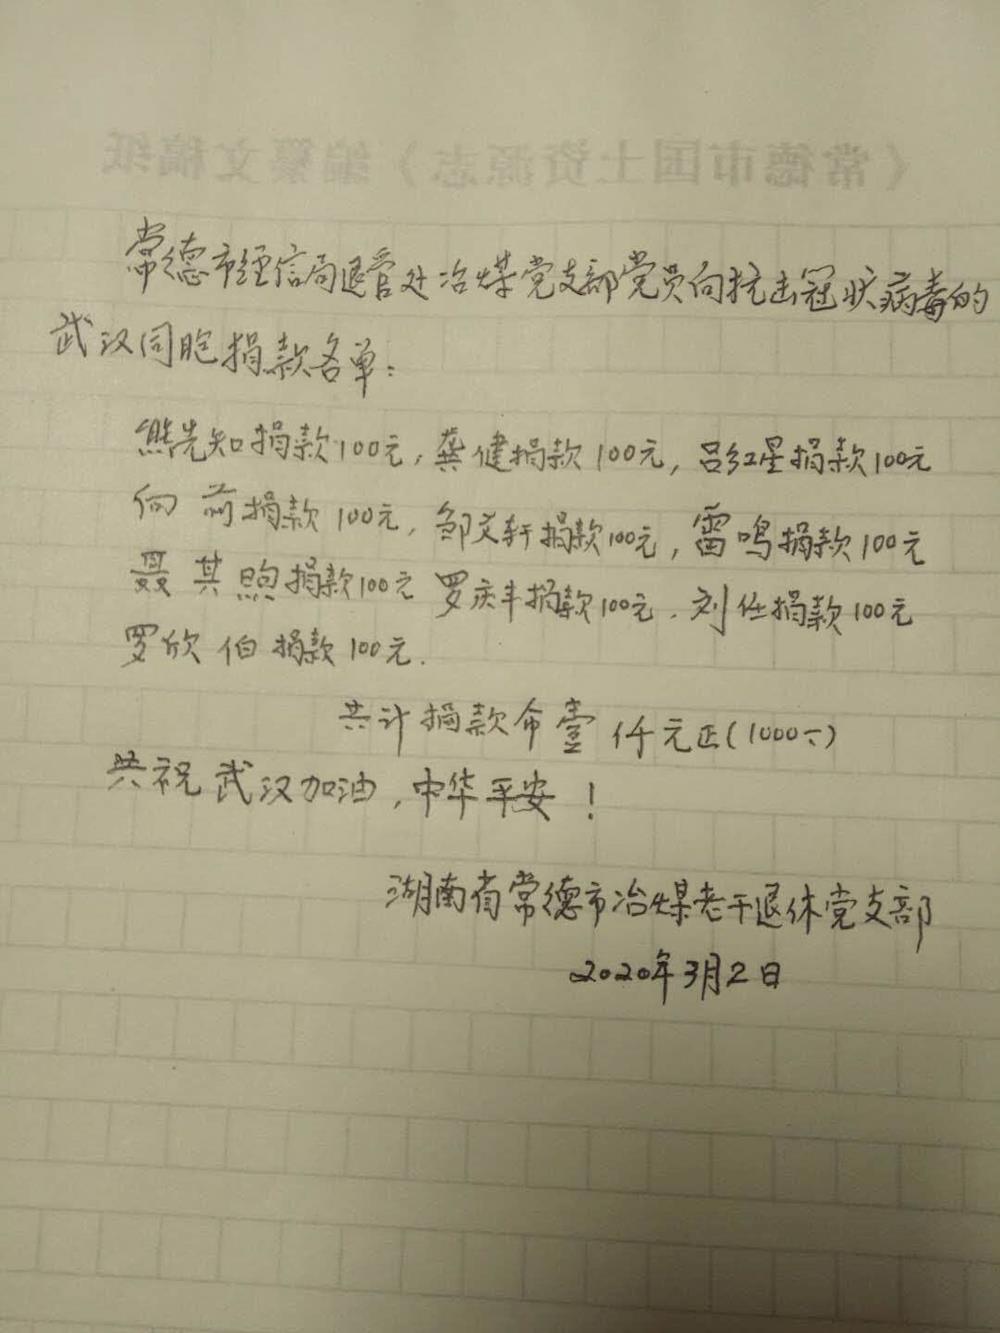 《常德市国土资源志》编纂文稿纸
常德市经信局退管处冶煤党支部党员向抗击冠状病毒的
武汉同胞捐款名单:
熊先知捐款100元,龚健捐款100元,吕红星捐款100元
向前捐款100元,邹文轩捐款100元,雷鸣捐款100元
聂其煦捐款100元 罗庆丰捐款100元.刘任捐款100元
罗欣伯捐款100元.
共计捐款壹仟元正(1000元)
共祝武汉加油,中华平安!
湖南省常德市冶煤老干退休党支部
2020年3月2日